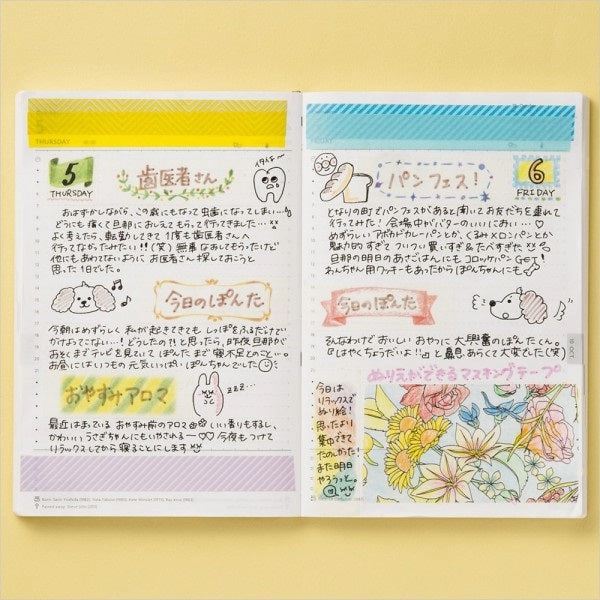 THURSDAY
5
THURSDAY
歯医者さん
イタイよ〜
おはずかしながら、この歳にもなって虫歯になってしまい…
どうにも痛くて旦那におしえてもらって行ってきました…
よく考えたら、転勤してきて1度も歯医者さんへ
行ってなかったみたい!!(笑) 無事なおしてもらったけど
他にもあわてないように お医者さん探しておこうと
思った1日でした。
今日のぽんた
今朝はめずらしく 私が起きてきても しっぽをふるだけで
かけよってこない…! どうしたの?!と思ったら、昨夜旦那が
おそくまでテレビを見ていて ぽんたまで寝不足とのこと…。
お昼にはいつもの元気いっぱいぽんちゃんでした
おやすみアロマ
zzz...
最近はまっている おやすみ前のアロマ いい香りもするし、
かわいいうさぎちゃんにもいやされる〜♡♡ 今夜もつけて
リラックスしてから寝ることにします
パンフェス!
6
FRIDAY
となりの町でパンフェスがあると聞いてお友だちを連れて
行ってみた! 会場中がバターのいいにおい…♡
めずらしいアボカドカレーパンとか、くるみメロンパンとか
魅力的すぎて ついつい買いすぎ&たべすぎた
旦那の明日のあさごはんにも コロッケパンGET!
わんちゃん用クッキーもあったから ぽんちゃんにも
今日のぽんた
そんなわけで おいしい おやつに 大興奮のぽんたくん。
『はやくちょうだいよ!!』と鼻息あらくて大変でした(笑)
ぬりえができるマスキングテープ
今日は
リラックスで
ぬり絵!
思ったより
集中できて
たのしかった!
また明日
やろうっと。
10 OCT